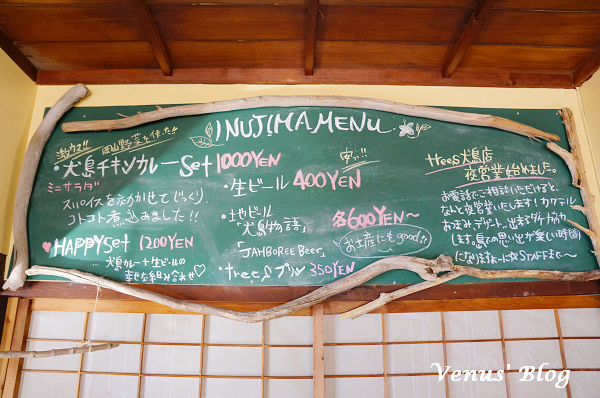 INUJIMA MENU
激ウマ!! 岡山野菜を使った!!
・犬島チキンカレーSet 1000YEN
ミニサラダ
スパイスをきかせてじっくり
コトコト煮込みました!!
♥HAPPYset 1200YEN
犬島カレー+生ビールの
幸せな組み合わせ♡
・生ビール 400YEN
・地ビール
「犬島物語」 各600YEN~
「JAHBOREE Beer」 お土産にもgood!!
・treesプリン 350YEN
trees犬島店
夜営業始めました。
お電話でご相談いただけると、
なんと夜営業いたします!カクテル
おつまみ デザート。出来るダケ協力
します。島での思い出が楽しい時間
になりますよーに☆STAFFまで~
Venus' Blog